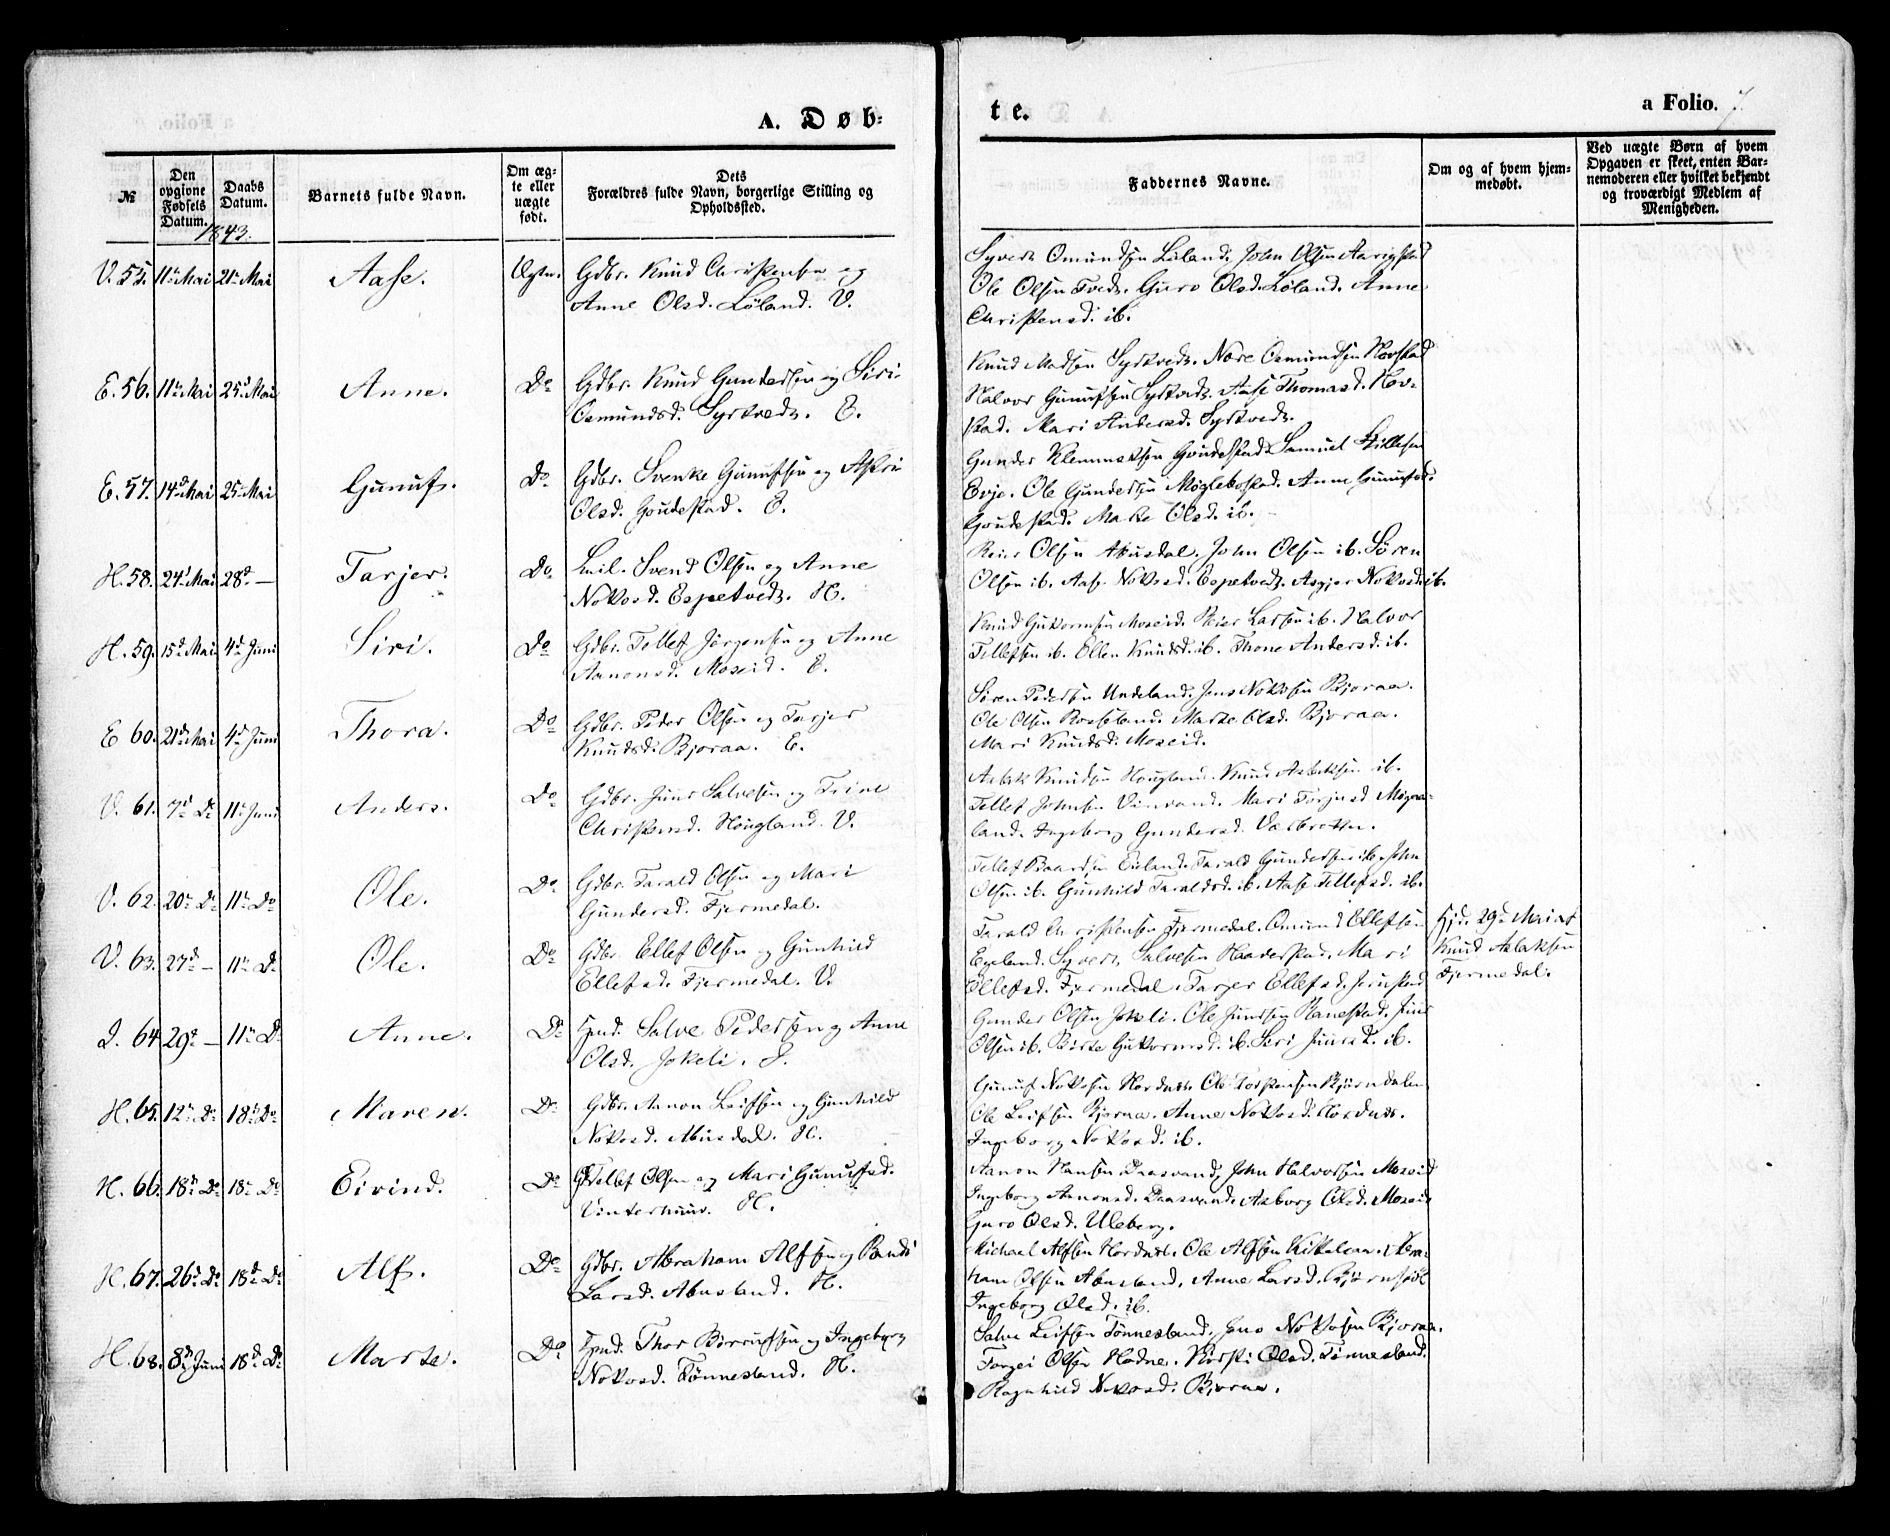 A. Døb-
te.
a Folio. 7
№
Den opgivne Fødsels Datum.
Daabs Datum.
Barnets fulde Navn.
Om ægte eller uægte født.
Dets Forældres fulde Navn, borgerlige Stilling og Opholdssted.
Faddernes Navne.
Om og af hvem hjemmedøbt.
Ved uægte Børn af hvem Opgaven er skeet, enten Barnemoderen eller hvilket bekjendt og troværdigt Medlem af Menigheden.
1843.
V. 55. 11te Mai 21de Mai Aase. Ægte. Gdbr. Knud Christensen og
Anne Olsd. Løland. V.
Syvert Omundsen Løland. John Olsen
Ole Olsen Tveds. Guro Olsd. Løland. Anne
Christensd. ib.
E. 56. 11te Mai 25d Mai Anne. Do Gdbr. Knud Gundersen og Siri
Osmundsd. Syrtveds. E.
Knud Madsen Syrtveds. Osmundsen
Halvor Gunufsen Syrtveds. Aase Thomasd.
Mari Andersd. Syrtveds.
E. 57. 14d Mai 25d Mai Gunuf. Do Gdbr. Svenke Gunufsen og
Olsd. E.
Gunder Samuel
Evje. Ole Gundersen Anne Gunufsd.
Olsd. ib.
H. 58. 24d Mai 28d — Tarjer. Do Svend Olsen og Anne
Nokosd. Espetveds. H.
Reier Olsen Abusdal. John Olsen ib. Søren
Olsen ib. Aase Nokosd. Espetveds. Asgjer Nokosd. ib.
H. 59. 15d Mai 4d Juni Siri. Do Gdbr. Tellef Jörgensen og Anne
Aanonsd. Moseid. E.
Knud Guttormsen Moseid. Reier Larsen ib. Halvor
Tellefsen ib. Ellen Knudsd. ib. Thone Andersd. ib.
E 60. 21d Mai 4d Juni Thora. Do Gdbr. Peder Olsen og Tarjer
Knudsd. Bjoraa. E.
Søren Pedersen Jens Nokosen Bjoraa.
Ole Olsen Rosseland. Marte Olsd. Bjoraa.
Mari Knudsd. Moseid.
V. 61. 7d Do 11te Juni Anders. Do Gdbr. Juur Salvesen og Trine
Christensd. Hougland. V.
Aslak Knudsen Hougland. Knud Aslaksen ib.
Tellef Johnsen Mari
land. Ingeborg Gundersd.
V. 62. 20de Do 11te Do Ole. Do Gdbr. Tarald Olsen og Mari
Gundersd. Fjermedal.
Tellef Tarald Gundersen ib. John
Olsen ib. Gunhild Taraldsd. ib. Aase Tellefsd. ib.
V. 63. 27d — 11te Do Ole. Do Gdbr. Ellef Olsen og Gunhild
Ellefsd. Fjermedal. V.
Tarald Christensen Fjermedal. Omund Ellefsen
Egeland. Syvert Salvesen Mari
Ellefsd. Fjermedal. Tarjer Ellefsd.
Hjd. 29d Mai af
Knud Aslaksen
Fjermedal.
64. 29d — 11te Do Anne. Do Hmd. Salve Pedersen og Anne
Olsd. Jokeli.
Gunder Olsen Jokeli. Ole Juursen Juur
Olsen ib. Birte Guttormsd. ib. Siri Juursd. ib.
H. 65. 12te Do 18de Do Maren. Do Gdbr. Aanon Leifsen og Gunhild
Nokosd. Abusdal. H.
Gunuf Nokosen Hordnes. Ole Torstensen Bjørndalen
Ole Leifsen Bjoraa. Anne Nokosd. Hordnes.
Ingeborg Nokosd. ib.
H. 66. 18d Do 18de Do Eivind. Do Tellef Olsen og Mari Gunufsd.
Vinterhuus. H.
Aanon Hansen Daasvand. John Halvorsen Moseid
Ingeborg Aanonsd. Daasvand. Aaborg Olsd. Moseid
Guro Olsd. Uleberg.
H. 67. 26d Do 18d Do Alf. Do Gdbr. Abraham Alfsen og
Larsd. Abusland. H.
Michael Alfsen Hordnes. Ole Alfsen Kittelaa. Abra-
ham Olsen Abusland. Anne Larsd.
Ingeborg Olsd. ib.
H. 68. 8d Juni 18d Do Marte. Do Hmd. Thor og Ingeborg
Nokosd. Tønnesland. H.
Salve Leifsen Tønnesland. Jens Nokosen Bjoraa.
Torgei Olsen Hodne. Kirsti Olsd. Tønnesland.
Ragnhild Nokosd. Bjoraa.